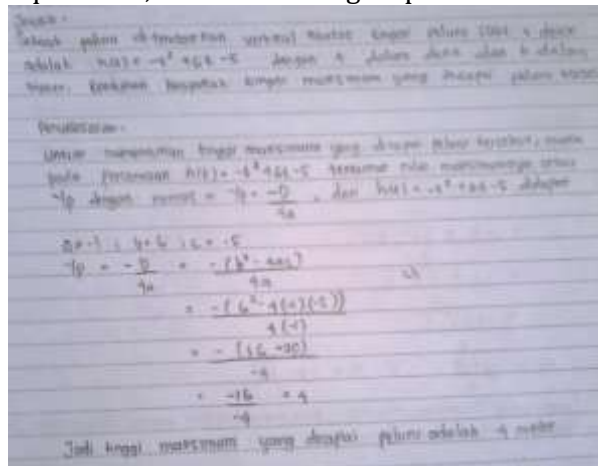 Sebuah peluru ditembakkan vertikal tinggi peluru saat t detik
adalah h(t) = -t² + 6t - 5 dengan t dalam detik dan h dalam
meter. tinggi maksimum yang dicapai peluru
Penyelesaian.
Untuk menentukan tinggi maksimum yang dicapai peluru tersebut, maka
pada persamaan h(t) = -t² + 6t - 5 nilai maksimumnya
Yp dengan rumus = Yp = -D/4a , dari h(t) = -t² + 6t - 5
a = -1 ; b = 6 ; c = -5
Yp = -D/4a = -(b² - 4ac)/4a
= -(6² - 4(-1)(-5))/4(-1)
= -(36 - 20)/-4
= -16/-4 = 4
Jadi tinggi maksimum yang dicapai peluru adalah 4 meter